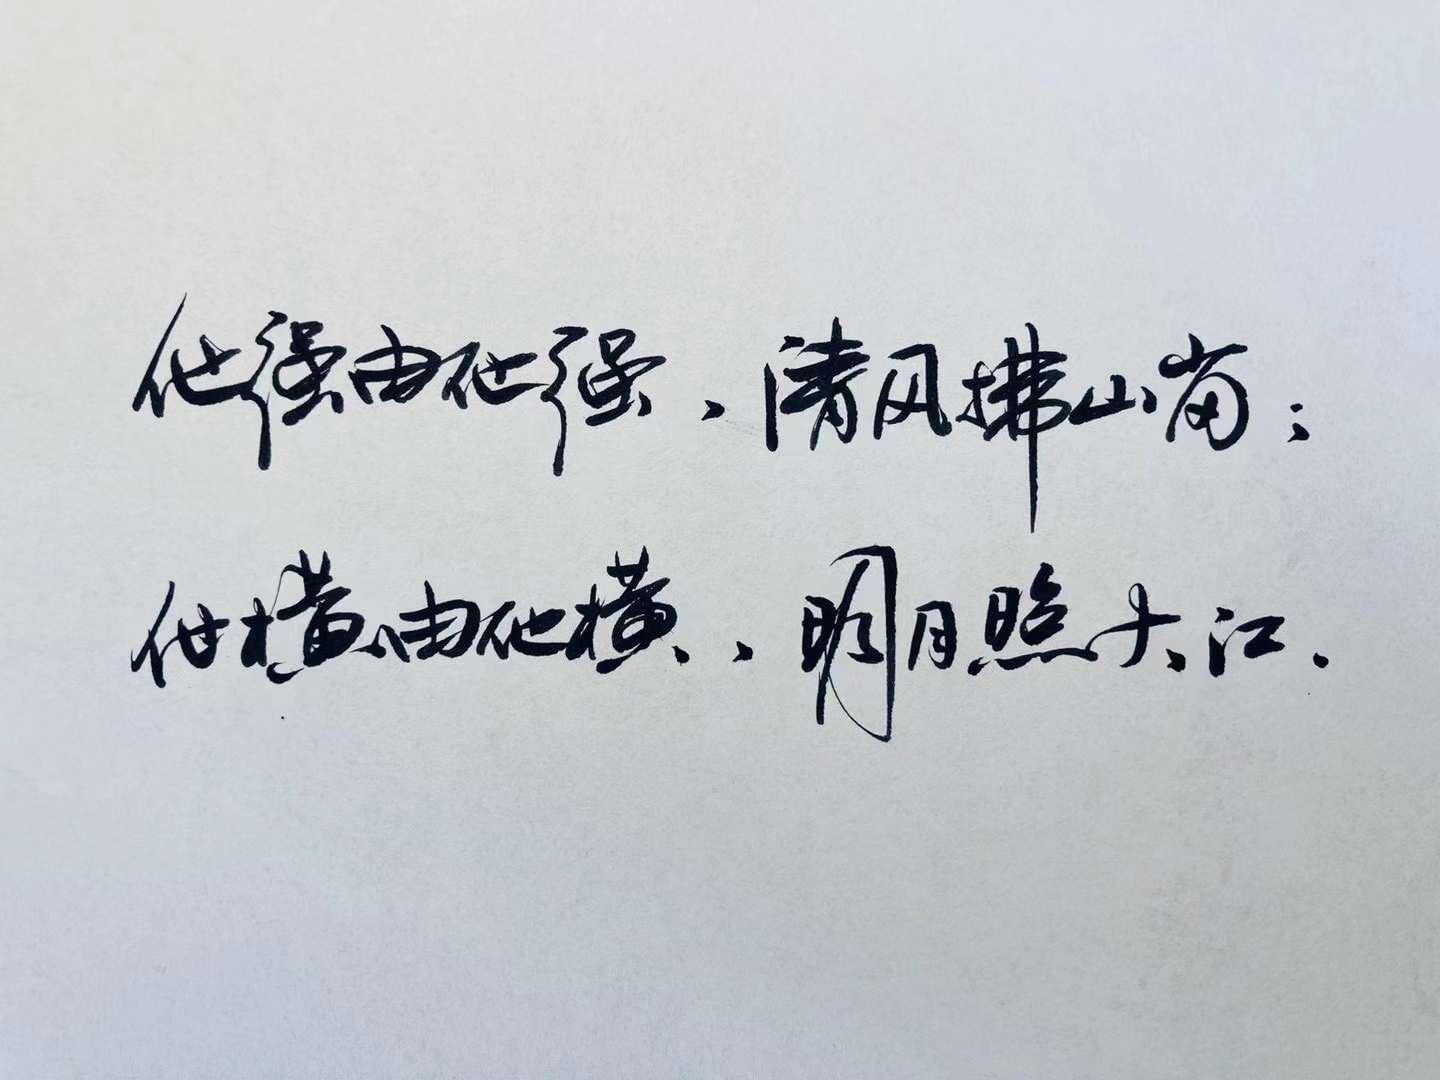 他强由他强、清风拂山岗；
他横由他横、明月照大江.